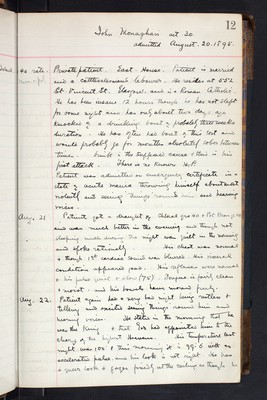 12
John Monaghan aet 30.
admitted August. 20. 1895.
Private patient. East House. Patient is married
and a labourer. He resides at 552
St. Vincent St. Glasgow. and is a Roman Catholic.
He has been insane 12 hours though he has not slept
for some nights and has only about two days ago
knocked off a drinking bout of probably three weeks
duration. He has often had bouts of this sort and
would probably go for months absolutely sober between
times. Drink is the supposed cause & this is his
first attack. There is no known H.P.
Patient was admitted on emergency certificate in a
state of acute mania throwing himself about most
violently and seeing things round him and hearing
voices.
Aug. 21
Patient got a draught of Chloral grs 40 & Pot Brom grs
and was much better in the evening and though not
sleeping much during the night was quiet in the morning
and spoke rationally. His chest was normal
though 1st cardiac sound was blurred. His general
condition appeared good. His reflexes were normal
& his pulse good & slow (75). Tongue is fairly clean
& moist. and his bowels have moved freely.
Aug. 22.
Patient again had a very bad night being restless &
talking and excited seeing things round him and
hearing voices. He states in the morning that he
was the King & that God had appointed him to the
charge of the highest Heavens. His temperature last
night was 100.8 this morning it is 99.6 with an
accelerated pulse and his look is not right. He has
a queer look & gazes fixedly at the ceiling as though he